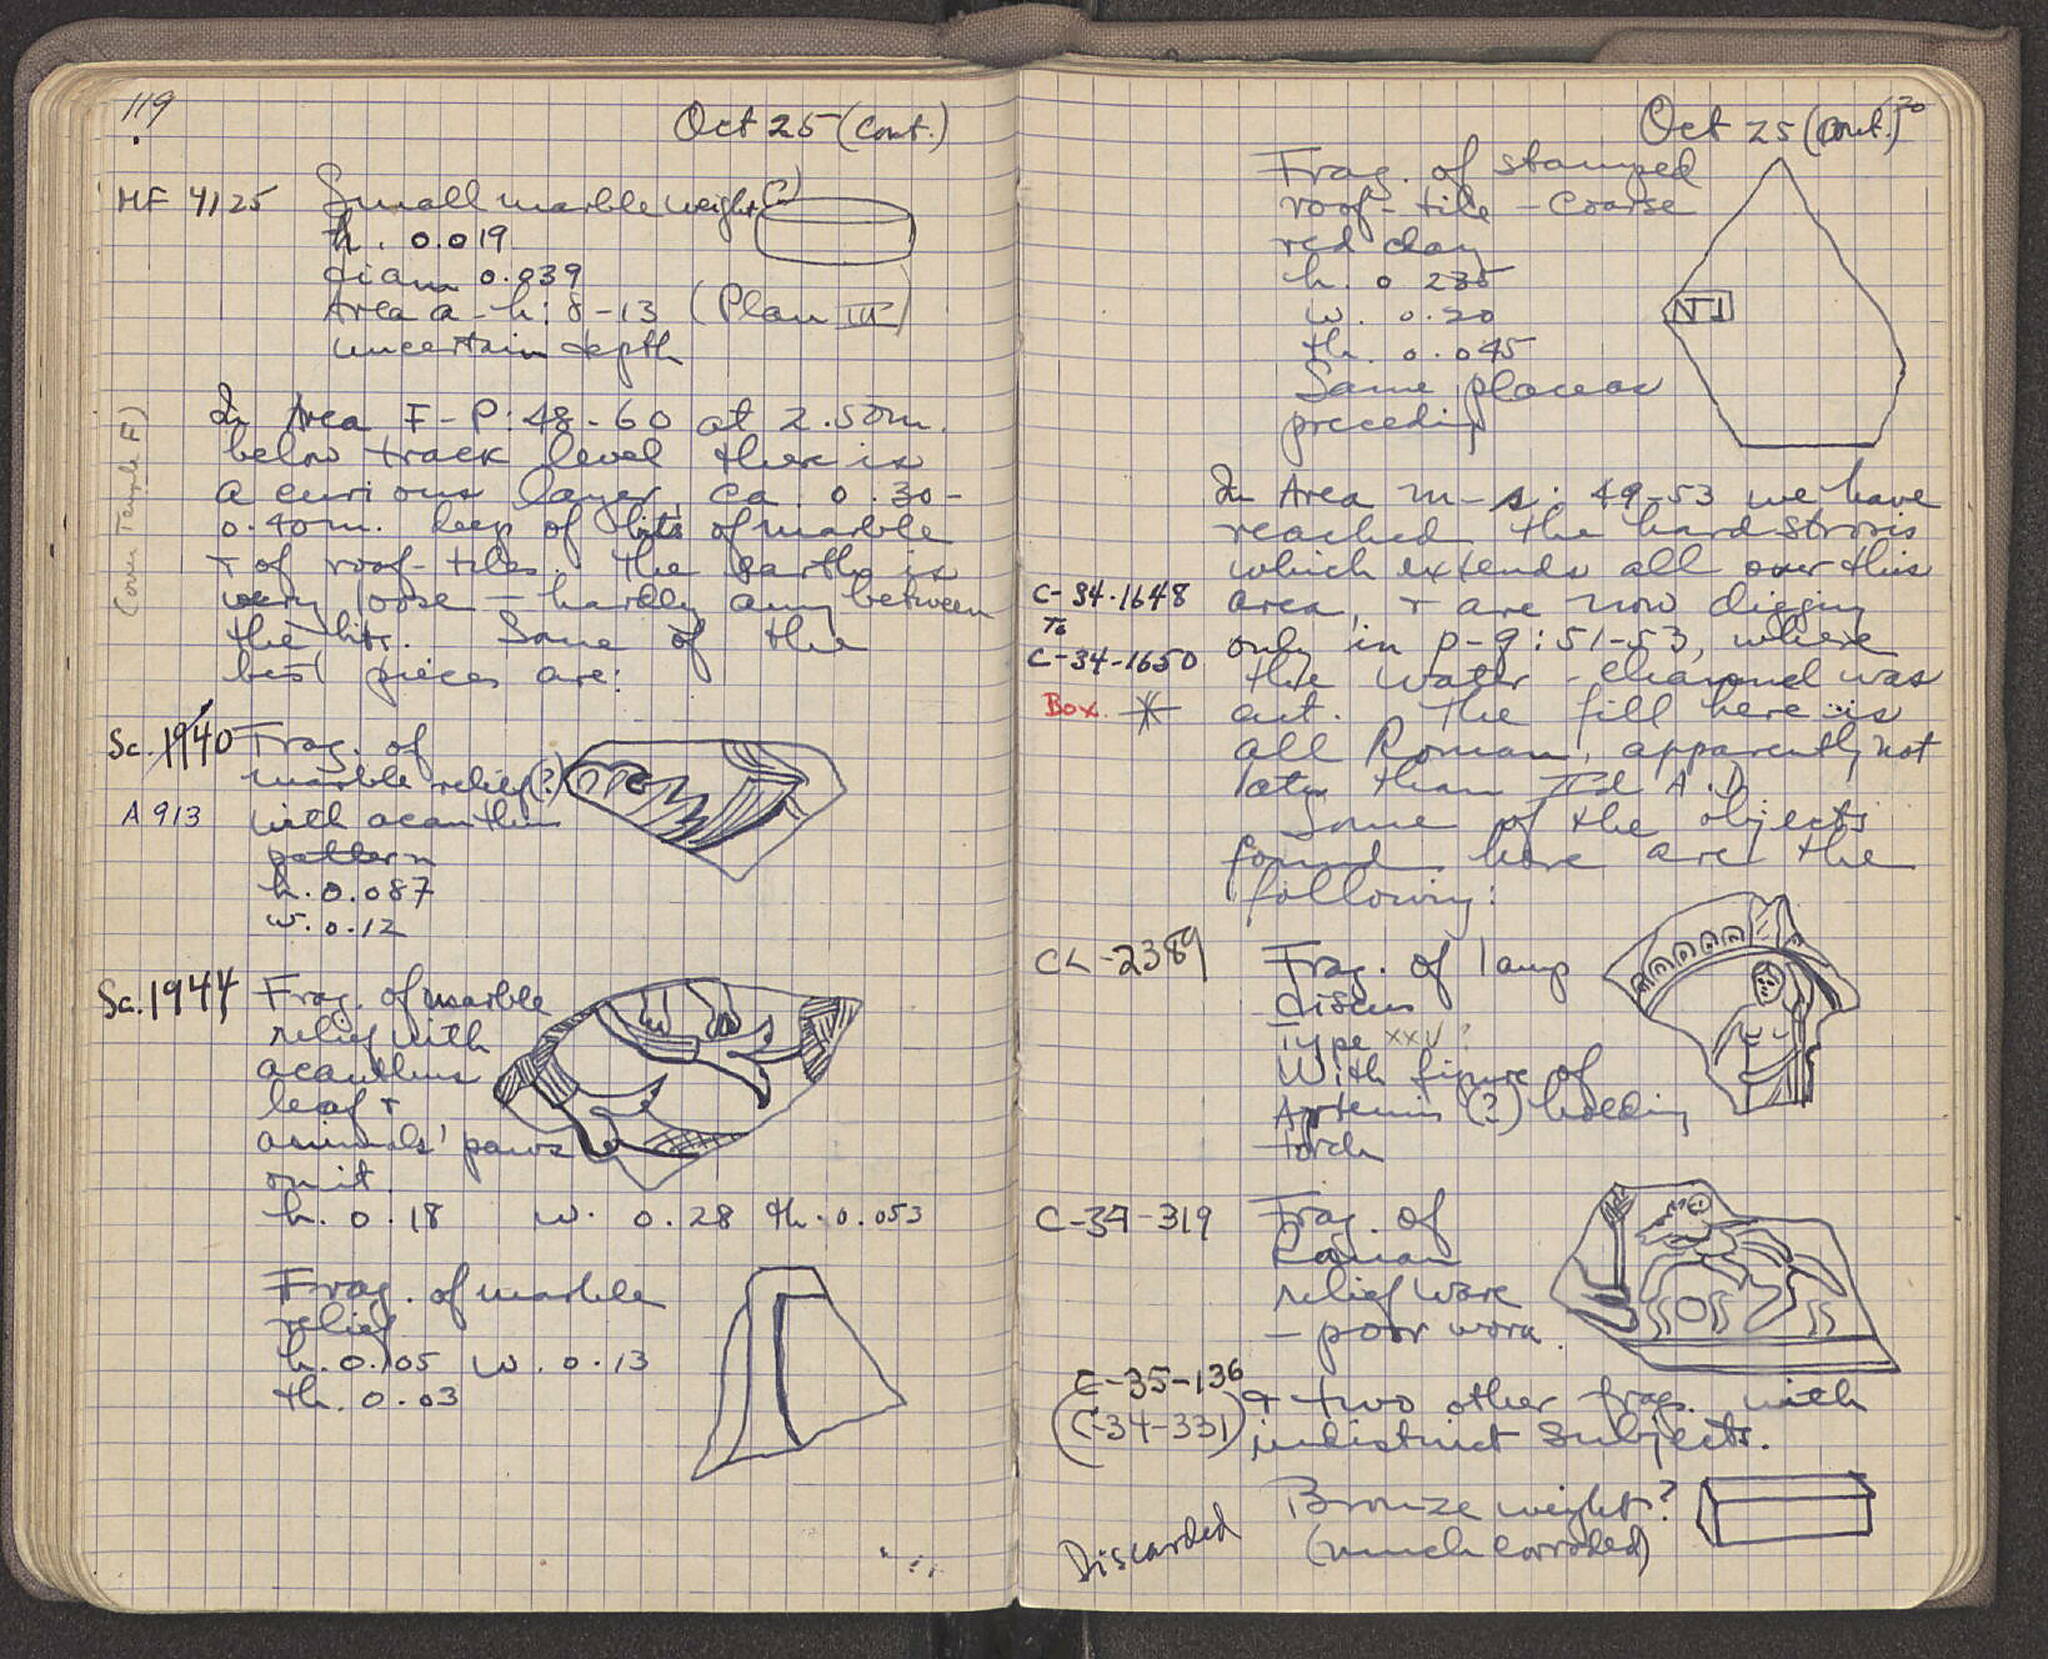 119
Oct 25 (Cont.)
MF 4125 Small marble weight (?)
h. 0.019
diam 0.039
Area a-h: 8-13 (Plan III)
uncertain depth
(over Temple F)
In Area F-P: 48-60 at 2.50m.
below track level there is
a curious layer, ca. 0.30-
0.40m. deep of bits of marble
+ of roof-tiles. The earth is
very loose – hardly any between
the bits. Some of the
best pieces are:
Sc. 1940 Frag. of
marble relief (?)
A 913 with acanthus
pattern
h. 0.087
w. 0.12
Sc. 1944 Frag. of marble
relief with
acanthus
leaf +
animals' paws
on it.
h. 0.18 w. 0.28 th. 0.053
Frag. of marble
relief
h. 0.105 w. 0.13
th. 0.03
120
Oct 25 (Cont.)
Frag. of stamped
roof-tile – coarse
red clay
h. 0.235
w. 0.20
th. 0.045
Same place as
preceding
In Area m-s: 49-53 we have
reached the hard stroxis
which extends all over this
C-34-1648 area, + are now digging
To only in p-q: 51-53, where
C-34-1650 the water-channel was
Box. cut. The fill here is
all Roman, apparently not
later than II A.D.
Some of the objects
found here are the
following:
CL-2389 Frag. of lamp
discus
Type XXV?
With figure of
Artemis (?) holding
torch
C-34-319 Frag. of
Roman
relief ware
– poor work.
C-35-136
(C-34-331) + two other frags. with
indistinct subjects.
Bronze weight?
Discarded (much corroded)